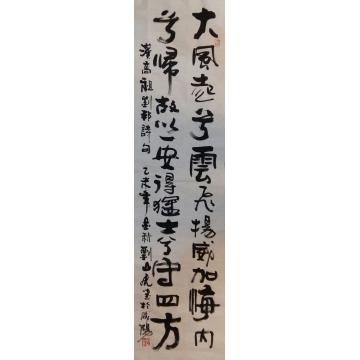 大風起兮雲飛揚威加海内
兮歸故鄉安得猛士兮守四方
漢高祖劉邦詩句 乙未年 劉山虎書於陽